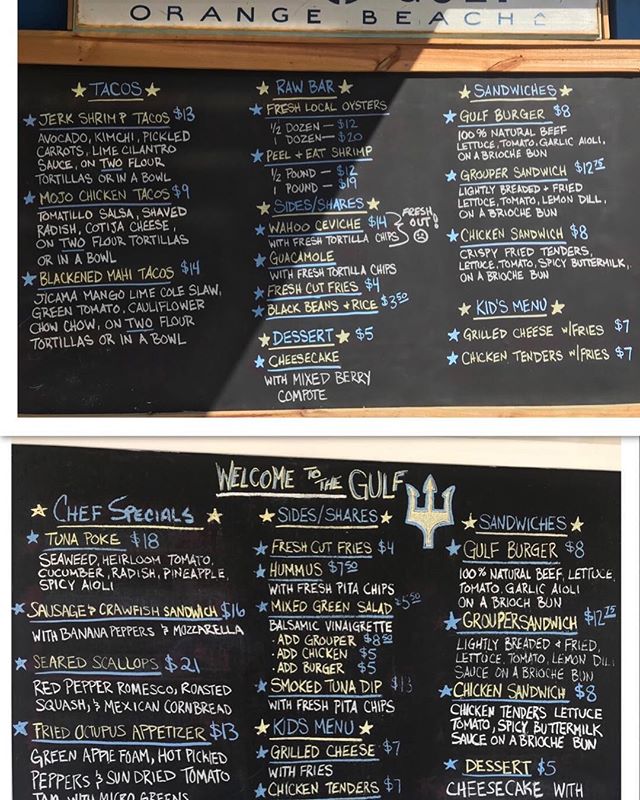 ORANGE BEACH
★ TACOS ★
★ JERK SHRIMP TACOS $13
AVOCADO, KIMCHI, PICKLED
CARROTS, LIME CILANTRO
SAUCE, ON TWO FLOUR
TORTILLAS OR IN A BOWL
★ MOJO CHICKEN TACOS $9
TOMATILLO SALSA, SHAVED
RADISH, COTIJA CHEESE,
ON TWO FLOUR TORTILLAS
OR IN A BOWL
★ BLACKENED MAHI TACOS $14
JICAMA MANGO LIME COLE SLAW,
GREEN TOMATO, CAULIFLOWER
CHOW CHOW, ON TWO FLOUR
TORTILLAS OR IN A BOWL
RAW BAR ★
★ FRESH LOCAL OYSTERS
1/2 DOZEN - $12
1 DOZEN - $20
★ PEEL + EAT SHRIMP
1/2 POUND - $12
1 POUND - $19
★ SIDES/SHARES ★
★ WAHOO CEVICHE $14
WITH FRESH TORTILLA CHIPS
FRESH
OUT!
★ GUACAMOLE
WITH FRESH TORTILLA CHIPS
★ FRESH CUT FRIES $4
★ BLACK BEANS + RICE $3.50
★ DESSERT ★ $5
★ CHEESECAKE
WITH MIXED BERRY
COMPOTE
★ SANDWICHES ★
★ GULF BURGER $8
100% NATURAL BEEF
LETTUCE, TOMATO, GARLIC AIOLI,
ON A BRIOCHE BUN
★ GROUPER SANDWICH $12.75
LIGHTLY BREADED + FRIED
LETTUCE, TOMATO, LEMON DILL,
ON A BRIOCHE BUN
★ CHICKEN SANDWICH $8
CRISPY FRIED TENDERS,
LETTUCE, TOMATO, SPICY BUTTERMILK,
ON A BRIOCHE BUN
★ KID'S MENU ★
★ GRILLED CHEESE W/FRIES $7
★ CHICKEN TENDERS W/FRIES $7
WELCOME TO THE GULF
★ CHEF SPECIALS ★
★ TUNA POKE $18
SEAWEED, HEIRLOOM TOMATO,
CUCUMBER, RADISH, PINEAPPLE,
SPICY AIOLI
★ SAUSAGE & CRAWFISH SANDWICH $16
WITH BANANA PEPPERS & MOZZARELLA
★ SEARED SCALLOPS $21
RED PEPPER ROMESCO, ROASTED
SQUASH, & MEXICAN CORNBREAD
★ FRIED OCTUPUS APPETIZER $13
GREEN APPLE FOAM, HOT PICKLED
PEPPERS & SUN DRIED TOMATO
WITH MICRO GREENS
★ SIDES/SHARES ★
★ FRESH CUT FRIES $4
★ HUMMUS $7.50
WITH FRESH PITA CHIPS
★ MIXED GREEN SALAD $5.50
BALSAMIC VINAIGRETTE
· ADD GROUPER $8.50
· ADD CHICKEN $5
· ADD BURGER $5
★ SMOKED TUNA DIP $13
WITH FRESH PITA CHIPS
★ KIDS MENU ★
★ GRILLED CHEESE $7
WITH FRIES
★ CHICKEN TENDERS $7
★ SANDWICHES ★
★ GULF BURGER $8
100% NATURAL BEEF, LETTUCE,
TOMATO, GARLIC AIOLI
ON A BRIOCH BUN
★ GROUPER SANDWICH $12.75
LIGHTLY BREADED & FRIED,
LETTUCE, TOMATO, LEMON DILL
SAUCE ON A BRIOCHE BUN
★ CHICKEN SANDWICH $8
CHICKEN TENDERS LETTUCE
TOMATO, SPICY BUTTERMILK
SAUCE ON A BRIOCHE BUN
★ DESSERT $5
CHEESECAKE WITH